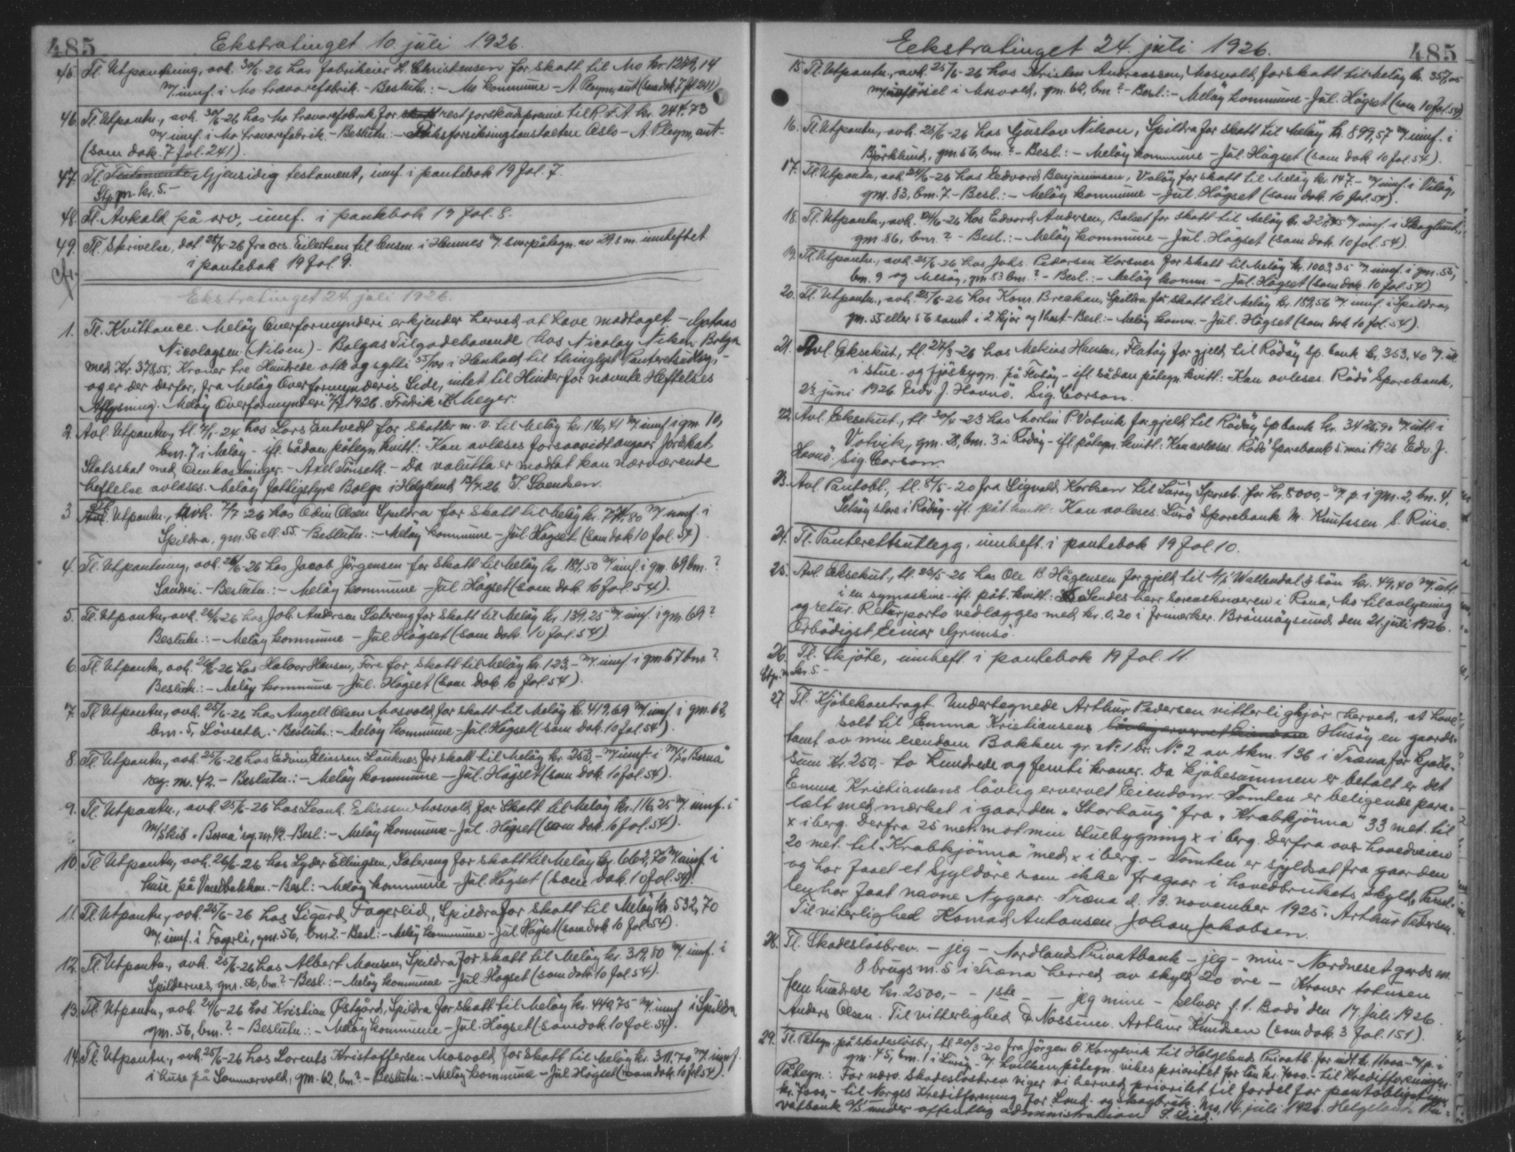 485
Ekstratinget 10. juli 1926.
45. Tl. Utpantning, avh. 30/6-26 hos fabrikeier H. Christensen for skatt til Mo kr. 1289,14
m/ innf. i Mo travarefabrik. - Beslutn: - Mo kommune - A. Pleym, aut. (som dok. 7 fol. 241)
46. Tl. Utpantn., avh. 30/6-26 hos Mo travarefabrik for restforsikradspremie til R.f.A. kr. 244.73
m/ innf. i Mo travarefabrik. - Beslutn: - Riksforsikringsanstalten Oslo - A. Pleym, aut.
(som dok. 7 fol. 241).
47. Tl. Gjensidig testament, innf. i pantebok 19 fol. 7.
Stp.m. kr. 5.-
48. Tl. Avkald på arv, innf. i pantebok 19 fol. 8.
49. Tl. Skrivelse, dat. fra ors. Eilertsen til lensm. i Hemnes m/ innheftet
i pantebok 19 fol. 9.
Ekstratinget 24. juli 1926.
1. Tl. Kvittance. Meløy Overformynderi erkjender herved at have modtaget -
Nicolaysen (Nilsen) - Bolgas tilgodehavende hos Nicolay Nilsen Bolga
med Kr. 378,55, Kroner tre Hundrede otte og sytti 55/100 i Henhold til thinglyst Panteretsudlæg -
og er der derfor, fra Meløy Overformynderis Side, intet til Hinder for nævnte Heftelses
Aflysning. Meløy Overformynderi 1926. Fredrik Meyer.
2. Avl. Utpantn., tl. 7/1-24 hos Lars Entvedt for skatter m. v. til Meløy kr. 186,41 m/ innf. i gm. 10,
bm. 7 i Meløy - ifl. sådan påtegn. kvitt: Kan avlæses forsaavidt angaar Jordskat,
Statsskat med Omkostninger. - Axel Tønseth. - Da valutta er modtat kan nærværende
heftelse avlæses. Meløy fattigstyre Bolga i Helgeland 26. T. Svendsen.
3. Tl. Utpantn., avh. 7/7-26 hos Edin Olsen Spildra for skatt til Meløy kr. 74,80 m/ innf. i
Spildra, gm. 56 ell. 55. - Beslutn.: - Meløy kommune - Jul. Høgset (som dok. 10 fol. 54)
4. Tl. Utpantning, avh. 26/6-26 hos Jacob Jörgensen for skatt til Meløy kr. 181,50 m/ innf. i gm. 69 bm. ?
Sandvi. - Beslutn: - Meløy kommune - Jul. Høgset (som dok. 10 fol. 54).
5. Tl. Utpantn., avh. 26/6-26 hos Joh. Andersen Sætreng for skatt til Meløy kr. 139.25 - m/ innf. i gm. 69 ?
Beslutn: - Meløy kommune - Jul. Høgset (som dok. 10 fol. 54)
6. Tl. Utpantn., avh. 26/6-26 hos Halvor Hansen, Fore for skatt til Meløy kr. 123,- m/ innf. i gm 67 bm ?
Beslutn: - Meløy kommune - Jul. Høgset (som dok. 10 fol. 54).
7. Tl. Utpantn., avh. 25/6-26 hos Angell Olsen Mosvold for skatt til Meløy kr. 419,69 m/ innf. i gm. 62,
bm. 5, Løvseth. - Beslutn: - Meløy kommune - Jul. Høgset (som dok. 10 fol. 54).
8. Tl. Utpantn., avh. 25/6-26 hos Edvin Eliassen Sauknes for skatt til Meløy kr. 253,- m/ innf. i M/s Borna
reg. nr. 42. - Beslutn: - Meløy kommune - Jul. Høgset (som dok. 10 fol. 54).
9. Tl. Utpantn., avh. 25/6-26 hos Leonh. Eliassen Mosvold for skatt til Meløy kr. 116,25 m/ innf. i
M/skib "Borna" reg. nr. 42. - Besl: - Meløy kommune - Jul. Høgset (som dok. 10 fol. 54).
10. Tl. Utpantn., avh. 26/6-26 hos Lyder Ellingsen, Sætreng for skatt til Meløy kr. 662,70 m/ innf. i
huse på Vandbakken. - Besl: - Meløy kommune - Jul. Høgset (som dok. 10 fol. 54).
11. Tl. Utpantn., avh. 25/6-26 hos Sigurd Fagerlid, Spildra for skatt til Meløy kr. 532,70
m/ innf. i Fagerli, gm. 56, bm. ?. - Besl: - Meløy kommune - Jul. Høgset (som dok. 10 fol. 54).
12. Tl. Utpantn., avh. 25/6-26 hos Albert Monsen, Spildra for skatt til Meløy kr. 319,80 m/ innf. i
Spildernes, gm. 56, bm. ? - Besl: - Meløy kommune - Jul. Høgset (som dok. 10 fol. 54).
13. Tl. Utpantn., avh. 24/6-26 hos Kristian Østgård, Spildra for skatt til Meløy kr. 449,75 - m/ innf. i Spildra,
gm. 56, bm. ? - Beslutn: - Meløy kommune - Jul. Høgset (som dok. 10 fol. 54).
14. Tl. Utpantn., avh. 25/6-26 hos Lorents Kristoffersen Mosvold for skatt til Meløy kr. 311,70 m/ innf.
i huse på Sommervold, gm. 62, bm ? - Beslutn: - Meløy kommune - Jul. Høgset (som dok. 10 fol. 54).
Eekstratinget 24. juli 1926.
485
15. Tl. Utpantn., avh. 25/6-26 hos Kristen Andreassen, Mosvold, for skatt til Meløy kr. 357,05
m/ innførsel i Mosvold, gm. 62, bm. ? - Besl: - Meløy kommune - Jul. Høgset (som 10 fol. 54)
16. Tl. Utpantn., avh. 25/6-26 hos Gustav Nilsen, Spildra for skatt til Meløy kr. 899,57 m/ innf. i
Björklund, gm. 56, bm. ? - Besl.: - Meløy kommune - Jul. Høgset (som dok. 10 fol. 54).
17. Tl. Utpantn., avh. 24/6-26 hos Hedvard Benjaminsen, Valøy for skatt til Meløy kr. 147.- m/ innf. i Valøy,
gm. 83, bm. 7. - Besl: - Meløy kommune - Jul. Høgset (som dok. 10 fol. 54).
18. Tl. Utpantn., avh. 24/6-26 hos Edvard Andersen, Bolset for skatt til Meløy kr. m/ innf. i Skoglund,
gm. 56, bm. ? - Besl.: - Meløy kommune - Jul. Høgset (som dok. 10 fol. 54).
19. Tl. Utpantn., avh. 25/6-26 hos Johs. Pedersen Korsnes for skatt til Meløy kr. 1003,35 m/ innf. i gm. 55,
bm. 9 og Messøy, gm. 83 bm. ? - Besl: - Meløy komm. - Jul. Høgset (som dok. 10 fol. 54)
20. Tl. Utpantn., avh. 25/6-26 hos Konr. Breckan, Spildra for skatt til Meløy kr. 189,56 m/ innf. i Spildra,
gm. 55 eller 56 samt i 2 kjør og 1 hest. - Besl: - Meløy komm. - Jul. Høgset (som dok. 10 fol. 54).
21. Avl. Eksekut., tl. 27/3-26 hos Mekias Hansen, Flatøy for gjeld til Rödöy sp. bank kr. 353,40 m/ utl.
i stue- og fjøsbygn. på - ifl. sådan påtegn. kvitt. - Kan avleses. Rödö Sparebank,
23 juni 1926 Edv. J. Havnö. Sig. Carson.
22. Avl. Eksekut., tl. 30/1-23 hos Martin P. Votvik for gjeld til Rödöy Sp. bank kr. 3426,90 m/ utl. i
Votvik, gm. 28, bm. 3 i Rödöy - ifl. påtegn. kvitt: Kan avleses. Rödö Sparebank 5. mai 1926 Edv. J.
Havnö. Sig. Carson.
23. Avl. Pantobl., tl. 8/5-20 fra Sigvald Korbøen til Lurøy Spareb. for kr. 8000,- m/ p. i gm. 2, bm. 4,
Selsøy store i Rödöy - ifl. påt. kvitt: Kan avleses. Lurö Sparebank M. Knutssen, S. Riise.
24. Tl. Panterettsutlegg, innheft. i pantebok 19 fol. 10.
25. Avl. Eksekut., tl. 23/5-26 hos Ole B. Hågensen for gjeld til A/s Wattendal & sön kr. 49,40 m/ utl.
i en symaskine - ifl. påt. kvitt: Sendes herr sorenskriveren i Rana, Mo til avlysning
og retur. Returporto vedlægges med kr. 0,20 i frimerker. Brönnöysund, den 21. juli 1926.
Erbödigst Einar Grimsö.
26. Tl. Skjøte, innheft. i pantebok 19 fol. 11.
Stp.m. kr. 5.-
27. Tl. Kjöbekontragt. Undertegnede Arthur Pedersen vitterliggjör herved, at have
solt til Emma Kristiansens Husöy en gaards-
tomt av min eiendom Bakken gr. No. 1 br. No. 2 av skm. 136 i Træna for kjöbe-
sum kr. 250,- to Hundrede og femti kroner. Da kjöbesummen er betalt er det
Emma Kristiansens lövlig ervervet Eiendom. - Tomten er beligende para-
lælt med mærket i gaarden "Storhaug" fra "Krabkjönna" 33 met. til
x i berg. Derfra 25 met. mot min stuebygning x i berg. Derfra over hovedveien
20 met. til "Krabkjönna" med x i berg. - Tomten er sjyldsat fra gaarden
og har faaet et Sjyldöre som ikke fragaar i hovedbrukets skyld. Parsel-
len har faat navne Nygaar. Træna d. 13. november 1925. Arthur Pedersen.
Til viterlighed Konrad Antonsen Johan Jakobsen.
28. Tl. Skadeslosbrev. - jeg - Nordlands Privatbank - jeg - min - Nordneset gards nr.
8 brugs nr. 5 i Træna herred, av skyld 20 öre - Kroner totusen
femhundrede kr. 2500,- - 1ste - - jeg mine - Selvær p.t. Bodö den 17. Juli 1926.
Anders Olsen. Til vitterlighed D. Nossum. Arthur Knudsen (som dok. 3 fol. 151).
29. Tl. Påtegn. på skadeslösbr., tl. 20/3-20 fra Jörgen B. Kongsvik til Helgelands Privatb. for intil kr. 11000 - m/ p. i
gm. 45, bm. 1 i Lurøy - m/ hvilken påtegn. vikes prioritet for lån kr. 7000.- til Kreditforeningen
Påtegn.: For norv. skadeslosbrev viger vi herved prioritet til fordel for pantobligation
kr. 7000,- til Norges Kreditforening for Land- og Skogbruk. Mo, 14. juli 1926. Helgelands Pri-
vatbank A/S under offentlig administration